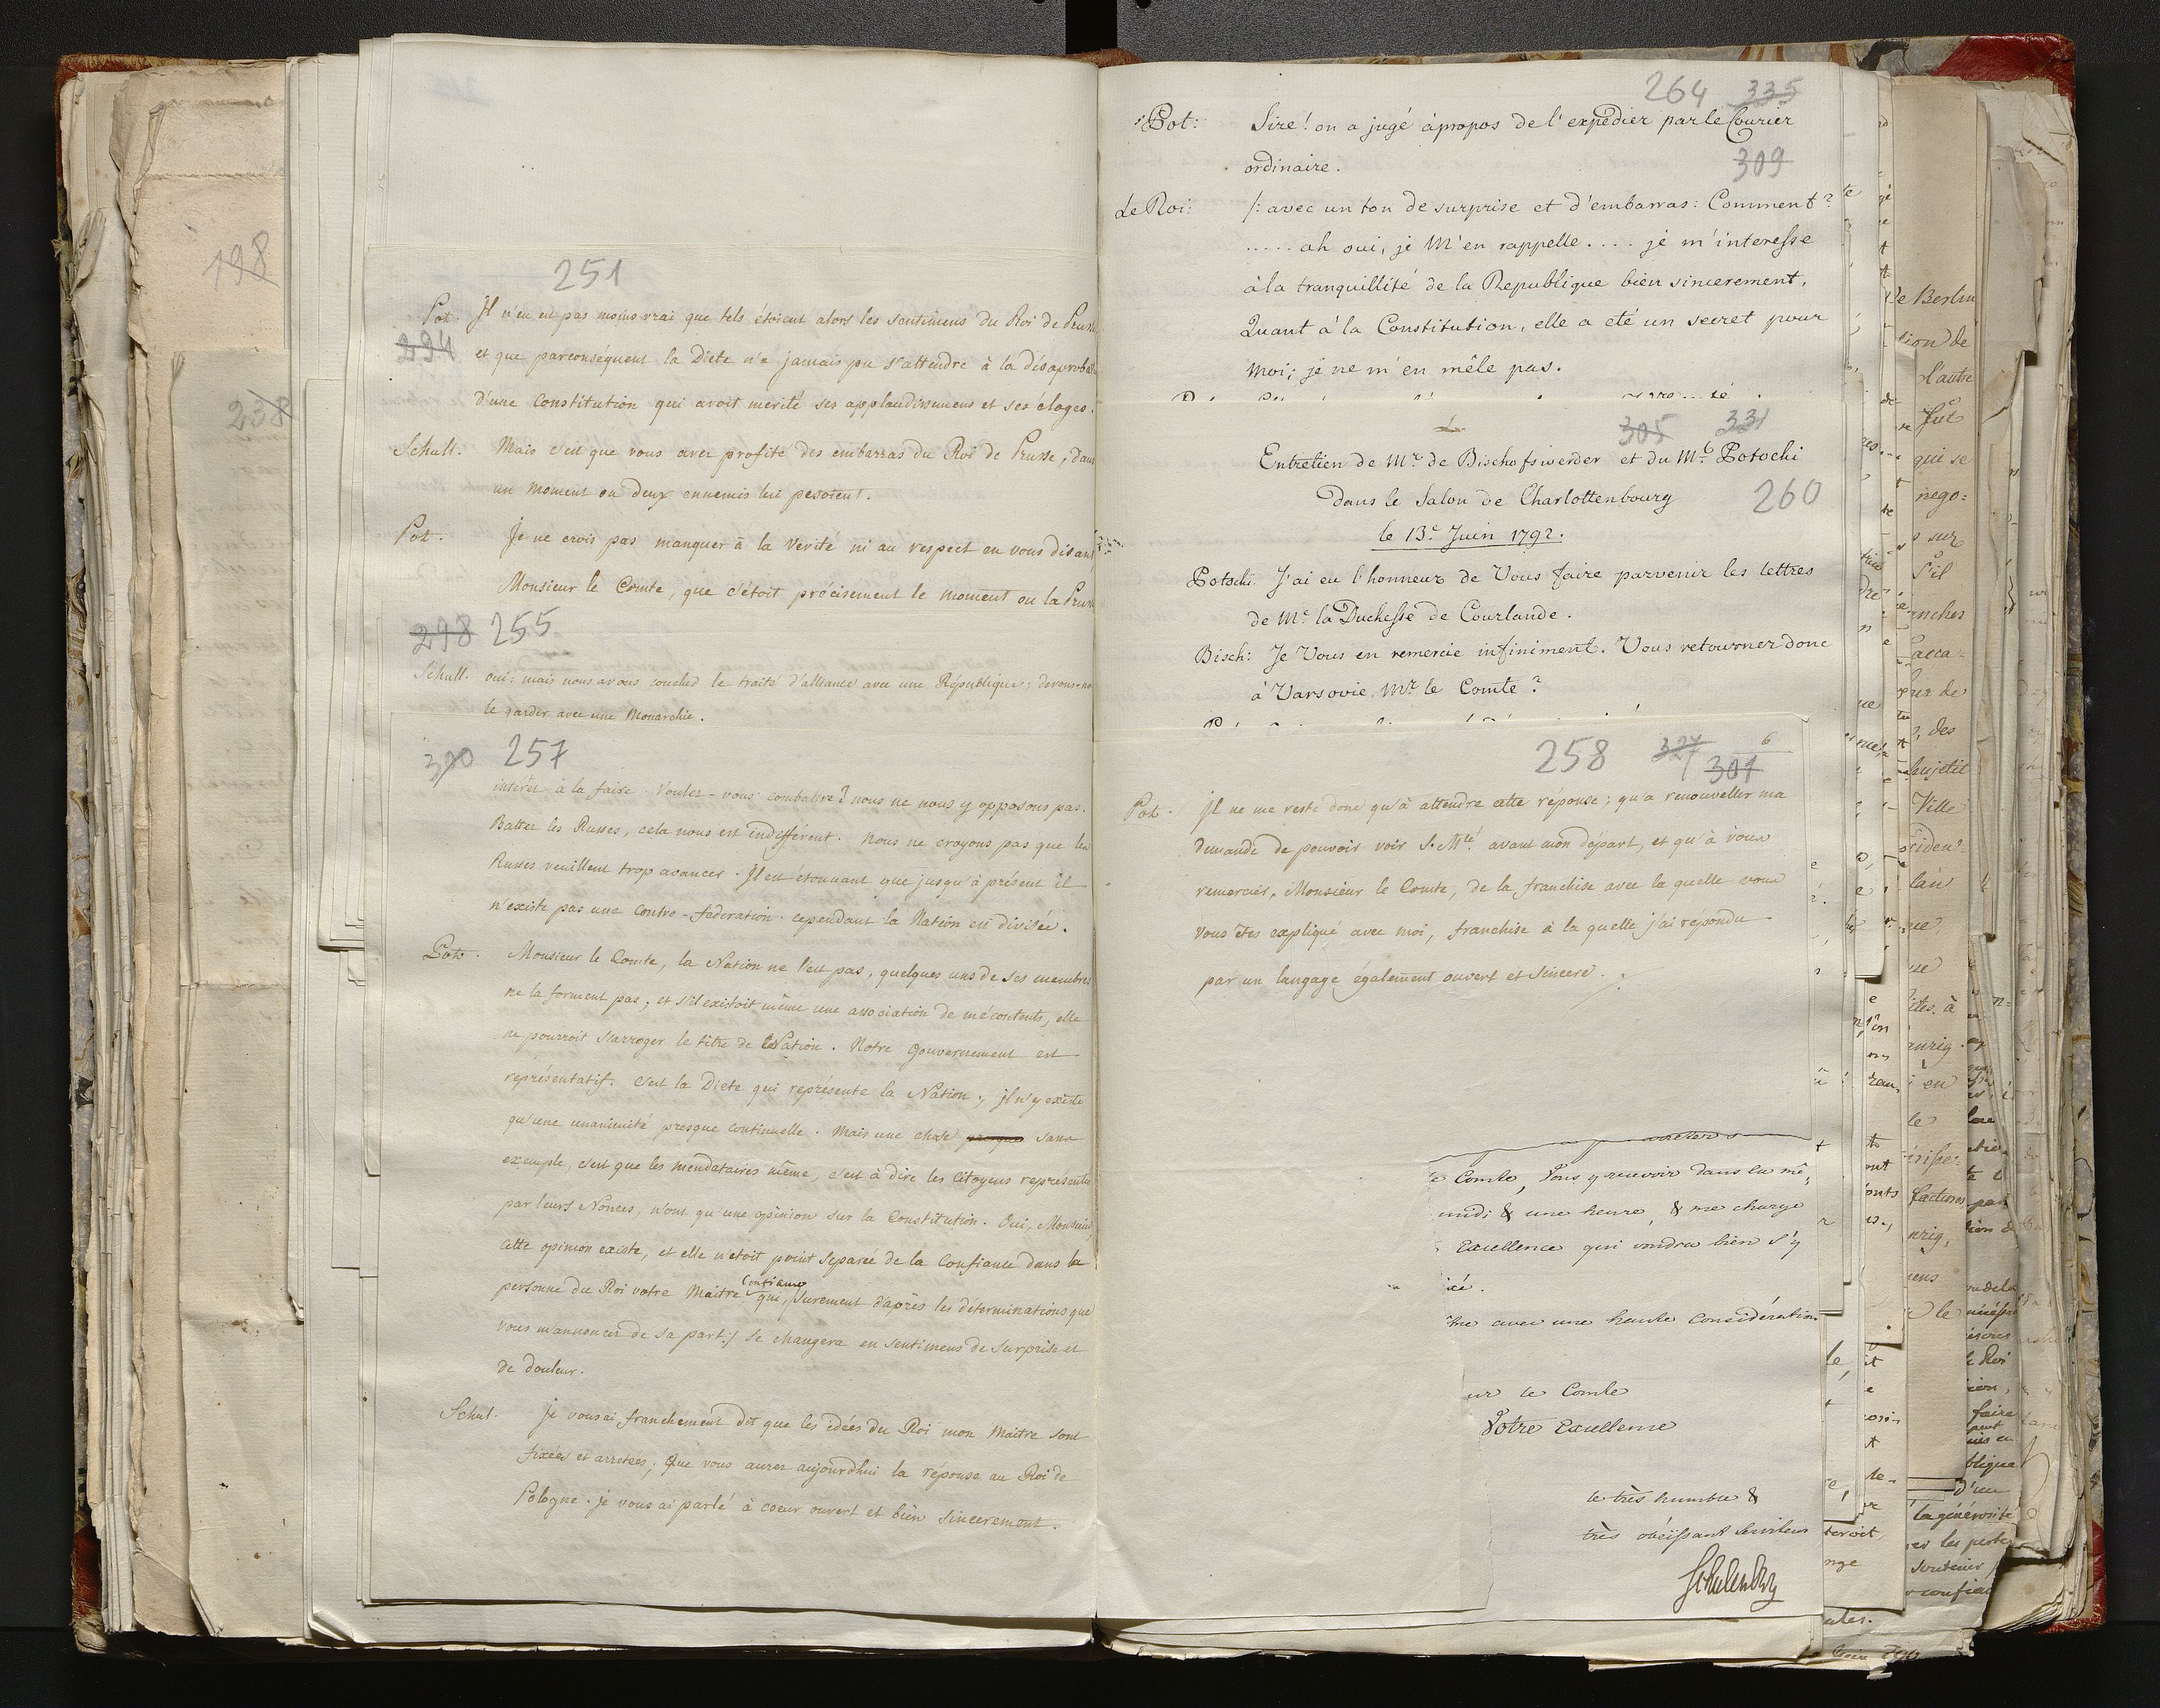 198
238
251
Pot. Il n'en est pas moins vrai que tels étoient alors les sentimens du Roi de Prusse
294 et que parconséquent la Diete n'a jamais pu s'attendre à la désaproba
d'une Constitution qui avoit mérité ses applaudissemens et ses éloges.
Schull. Mais c'est que vous avez profité des embarras du Roi de Prusse, dans
un moment ou deux ennemis lui pesoient.
Pot. Je ne crois pas manquer à la verité ni au respect en vous disant
Monsieur le Comte, que c'étoit précisement le moment ou la Pruss
298 255
Schull. oui; mais nous avons conclud le traité d'alliance avec une République; devons-no
le garder avec une Monarchie.
300 257
intérêt à la faire. Voulez-vous combattre? nous ne nous y opposons pas.
Battez les Russes, cela nous est indifférent. Nous ne croyons pas que les
Russes veuillent trop avancer. Il est etonnant que jusqu'à présent il
n'existe pas une Contre-féderation. cependant la Nation est divisée.
Pot. Monsieur le Comte, la Nation ne l'est pas, quelques uns de ses membres
ne la forment pas, et s'il existoit même une association de mécontents, elle
ne pourroit s'arroger le titre de Nation. Notre gouvernement est
représentatif. c'est la Diete qui représente la Nation; il n'y existe
qu'une unanimité presque continuelle. Mais une chose sans
exemple, c'est que les mendataires même, c'est à dire les Citoyens représentés
par leurs Nonces, n'ont qu'une opinion sur la Constitution. Oui, Monsieur,
cette opinion existe, et elle n'étoit point separée de la Confiance dans la
personne du Roi votre Maitre Confiance qui, surement d'après les déterminations que
vous m'annoncez de sa part :/ se changera en sentimens de surprise et
de douleur.
Schul. Je vous ai franchement dit que les idées du Roi mon Maitre sont
fixées et arretées; Que vous aurez aujourd'hui la réponse au Roi de
Pologne. je vous ai parlé à coeur ouvert et bien sincerement.
264 335
Pot: Sire! on a jugé àpropos de l'expédier par le Courier
ordinaire.
309
Le Roi: /: avec un ton de surprise et d'embarras: Comment?
..... ah oui, je M'en rappelle.... je m'interesse
à la tranquillité de la Republique bien sincerement,
Quant à la Constitution, elle a eté un secret pour
moi; je ne m'en mêle pas.
305 331
Entretien de Mr. de Bischofswerder et du Mr. Potocki
dans le Salon de Charlottenbourg
260
le 13e. Juin 1792.
Potocki. J'ai eu l'honneur de Vous faire parvenir les lettres
de Me. la Duchesse de Courlande.
Bisch: Je Vous en remercie infiniment. Vous retournez donc
à Varsovie, Mr. le Comte?
258 327 6
301
Pot. Il ne me reste donc qu'à attendre cette réponse; qu'à renouveller ma
demande de pouvoir voir S. Mté. avant mon départ, et qu'à vous
remercier, Monsieur le Comte, de la franchise avec la quelle vous
vous êtes expliqué avec moi, franchise à la quelle j'ai repondu
par un langage également ouvert et sincere.
Comte, Vous y recevoir dans la mê
midi & une heure, & me charge
Excellence qui voudra bien s'y
avec une haute Considération
le Comte
Votre Excellence
le très humble &
très obéissant Serviteur
Schulenburg
de Berlin
tion de
l'autre
fut
qui se
nego=
sur
s'il
des
Ville
en
le Roi
faire
d'un
la générosité
soutenir